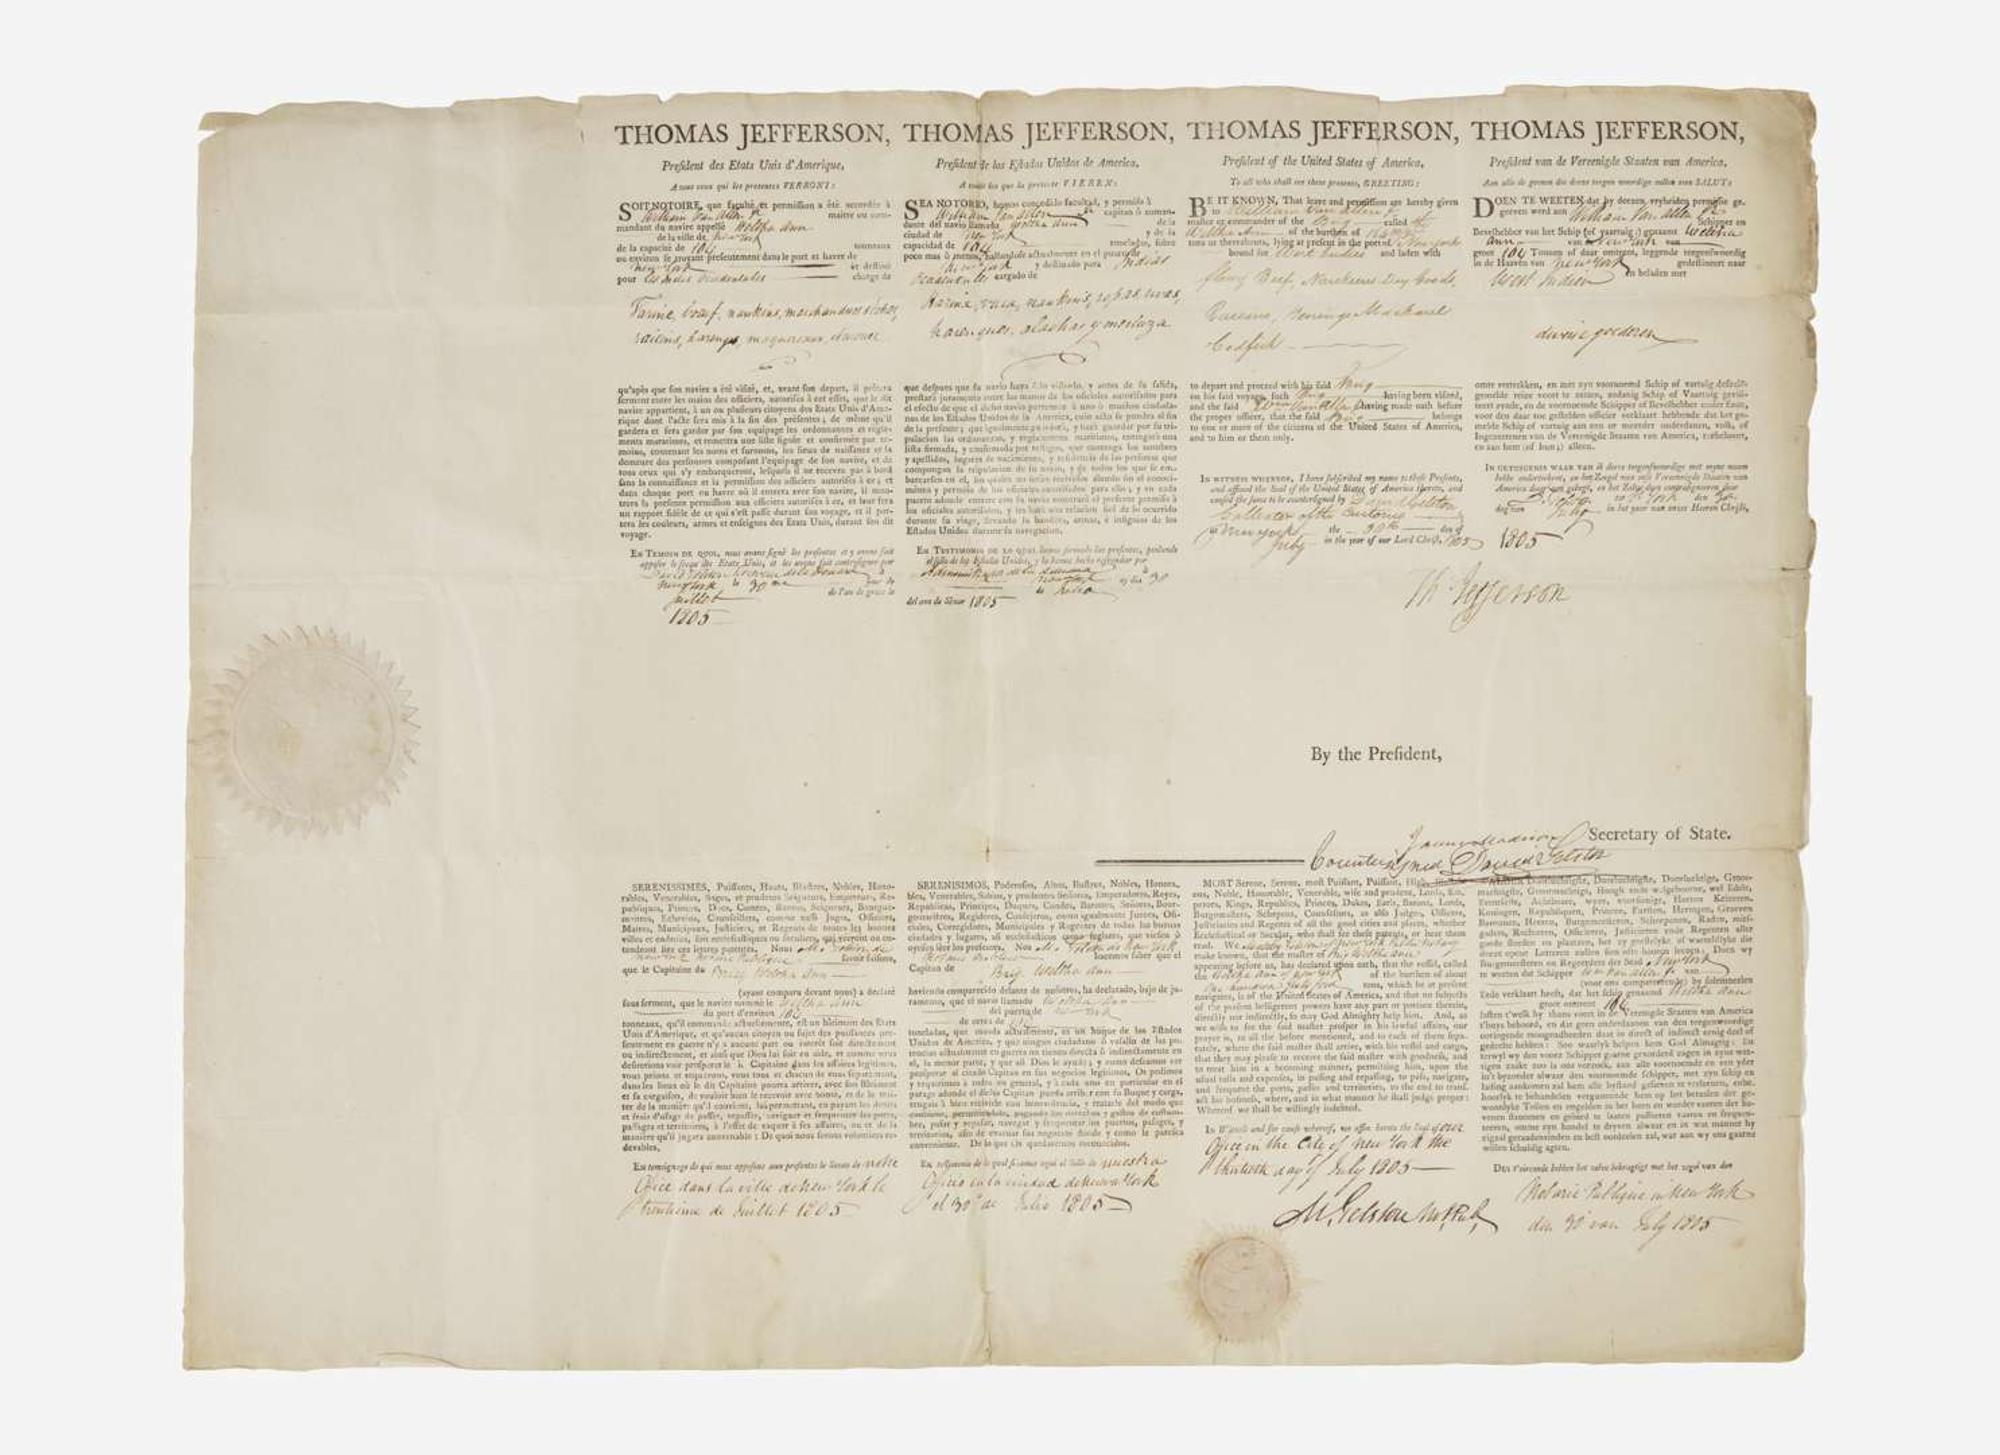 THOMAS JEFFERSON,
President des Etats Unis d'Amerique,
A tous ceux qui les presentes VERRONT:
SOIT NOTOIRE, que faculté et permission a été accordée à
William Van Allen Jr maitre ou com-
mandant du navire appellé Woltha Ann
de la ville de New York
de la capacité de 164 tonneaux
ou environ se trouvant presentement dans le port et havre de
New York et destiné
pour Les Indes Occidentales chargé de
Farine, boeuf, nankins, marchandises sêches,
raisins, harengs, maquereaux,
qu'après que son navire a été visité, et, avant son depart, il pretera
serment entre les mains des officiers, autorisés à cet effet, que le dit
navire appartient, à un ou plusieurs citoyens des Etats Unis d'Ame-
rique dont l'acte sera mis à la fin des présentes; de même qu'il
gardera et fera garder par son equipage les ordonnances et règle-
ments maritimes, et remettra une liste signée et confirmée par té-
moins, contenant les noms et surnoms, les lieux de naissance et la
demeure des personnes composant l'equipage de son navire, et de
tous ceux qui s'y embarqueront, lesquels il ne recevra pas à bord
sans la connaissance et la permission des officiers autorisés à ce; et
dans chaque port ou havre où il entrera avec son navire, il mon-
trera la presente permission aux officiers autorisés à ce, et leur fera
un rapport fidèle de ce qui s'est passé durant son voyage, et il por-
tera les couleurs, armes et enseignes des Etats Unis, durant son dit
voyage.
EN TEMOIN DE QUOI, nous avons signé les presentes et y avons fait
apposer le sceau des Etats Unis, et les avons fait contresigner par
David Gelston de la Douane à
New York le 30me jour de
Juillet de l'an de grace le
1805
THOMAS JEFFERSON,
President de los Estados Unidos de America,
A todos los que la presente VIEREN:
SEA NOTORIO, hemos concedido facultad, y permiso à
William Van Allen Jr capitan ò coman-
dante del navio llamado Woltha Ann de la
ciudad de New York y de la
capacidad de 164 toneladas, sobre
poco mas ò menos, hallandose actualmente en el puerto de
New York y destinado para Indias
Occidentales cargado de
Harina, vaca, nankins, ropas, uvas,
harenques, alachas y merluza
que despues que su navio haya sido visitado, y antes de su salida,
prestará juramento entre las manos de los oficiales autorisados para
el efecto de que el dicho navio pertenece à uno ò muchos ciudada-
nos de los Estados Unidos de la America, cuio acta se pondra al fin
de la presente; que igualmente guardará, y hará guardar por su tri-
pulacion las ordenanzas, y reglamentos maritimos, entregará una
lista firmada, y confirmada por testigos, que contenga los nombres
y apellidos, lugares de nacimiento, y residencia de las personas que
compongan la tripulacion de su navio, y de todos los que se em-
barcasen en el, los quales no serán recividos abordo sin el conoci-
miento y permiso de los oficiales autorisados para ello; y en cada
puerto adonde entrare con su navio mostrará el presente permiso à
los oficiales autorisados, y les hará una relacion fiel de lo ocurrido
durante su viage, llevando la bandera, armas, è insignias de los
Estados Unidos durante su navegacion.
EN TESTIMONIO DE LO QUAL hemos firmado las presentes, poniendo
el sello de los Estados Unidos, y lo hemos hecho refrendar por
Administrador de la
New York oy dia 30
de Julio
del ano de Senor 1805
THOMAS JEFFERSON,
President of the United States of America,
To all who shall see these presents, GREETING:
BE IT KNOWN, That leave and permission are hereby given
to William Van Allen Jr
master or commander of the Brig called the
Woltha Ann of the burthen of 164
tons or thereabouts, lying at present in the port of New York
bound for West Indies and laden with
flour, Beef, Nankeens, Dry Goods,
Raisins, Herrings, Mackarel
Codfish
to depart and proceed with his said Brig
on his said voyage, such Brig having been visited,
and the said Wm Van Allen Jr having made oath before
the proper officer, that the said Brig belongs
to one or more of the citizens of the United States of America,
and to him or them only.
IN WITNESS WHEREOF, I have subscribed my name to these Presents,
and affixed the Seal of the United States of America thereto, and
caused the same to be countersigned by David Gelston
Collector of the Customs
at New York the 30th day of
July in the year of our Lord Christ, 1805
Th: Jefferson
THOMAS JEFFERSON,
President van de Vereenigde Staaten van America,
Aan alle de geenen die deeze tegen woordige zullen zien SALUT:
DOEN TE WEETEN dat by deezen vryheiden permissie ge-
geeven werd aan William Van Allen Jr
Schipper en
Bevelhebber van het Schip (of vaartuig) genaamt Woltha
Ann van New York van
groot 164 Tonnen of daar omtrent, leggende tegenswoordig
in de Haaven van New York gedestineert naar
West Indien en beladen met
diverse goederen
omte vertrekken, en met zyn voornoemd Schip of vartuig deszelfs
gemelde reize voort te zetten, zodanig Schip of Vaartuig gevisi-
teert zynde, en de voornoemde Schipper of Bevelhebber onder Eede,
voor den daar toe gestelden officier verklaart hebbende dat het ge-
melde Schip of vartuig aan een or meerder onderdanen, volk, of
Ingezetenen van de Vereenigde Staaten van America, toebehoort,
en aan hem (of hun;) alleen.
IN GETUIGENIS WAAR VAN ik deeze tegenswoordige met myne naam
hebbe ondertekent, en het Zegel van onze Vereenigde Staaten van
America daar aan gehegt, en het zelve doen contrasigneren door
D. Gelston to N York den 30
dag van July in het jaar van onzen Heeren Christi,
1805
By the President,
James Madison Secretary of State.
Countersigned David Gelston
SERENISSIMES, Puissants, Hauts, Illustres, Nobles, Hono-
rables, Venerables, Sages, et prudents Seigneurs, Empereurs, Re-
publiques, Princes, Ducs, Comtes, Barons, Seigneurs, Bourgue-
mestres, Echevins, Conseillers, comme aussi Juges, Officiers,
Maires, Municipaux, Justiciers, et Regents de toutes les bonnes
villes et endroits, soit ecclésiastiques ou seculiers, qui verront ou en-
tendront lire ces lettres patentes. Nous M. Gelston de
New York Notaire Publique savoir faisons,
que le Capitaine du Brig Woltha Ann
(ayant comparu devant nous) a declaré
sous serment, que le navire nommé le Woltha Ann
du port d'environ 164
tonneaux, qu'il commande actuellement, est un bâtiment des Etats
Unis d'Amerique, et qu'aucun citoyen ou sujet des puissances pre-
sentement en guerre n'y a aucune part ou interêt soit directement
ou indirectement, et ainsi que Dieu lui soit en aide, et comme nous
desirerions voir prosperer le dit Capitaine dans ses affaires légitimes,
nous prions et requerons, vous tous et chacun de vous separement,
dans les lieux où le dit Capitaine pourra arriver, avec son bâtiment
et sa cargaison, de vouloir bien le recevoir avec bonté, et de le trai-
ter de la manière qu'il convient, lui permettant, en payant les droits
et frais d'usage de passer, repasser, naviguer et frequenter les ports,
passages et territoires, à l'effet de vaquer à ses affaires, ou et de la
manière qu'il jugera convenable: De quoi nous serons volontiers re-
devables,
En temoignage de quoi nous apposons aux presentes le Sceau de notre
Office dans la ville de New York le
trentième de Juillet 1805
SERENISIMOS, Poderosos, Altos, Ilustres, Nobles, Honora-
bles, Venerables, Sabios, y prudentes Señores, Emperadores, Reyes,
Republicas, Principes, Duques, Condes, Barones, Señores, Bour-
gemestres, Regidores, Consejeros, como igualmente Jueces, Ofi-
ciales, Corregidores, Municipales y Regentes de todas las buenas
ciudades y lugares, sii ecclesiasticos como seglares, que viesen ò
oyesen leer los presentes. Nos M. Gelston de New York
Notario Publico hacemos saber que el
Capitan de Brig Woltha Ann
haviendo comparecido delante de nosotros, ha declarado, bajo de ju-
ramento, que el navio llamado Woltha Ann
del puerto de New York
de cerca de
toneladas, que manda actualmente, es un buque de los Estados
Unidos de America, y que ningun ciudadano ò vasallo de las po-
tencias actualmente en guerra no tienen directa ò indirectamente en
el, la menor parte, y que asi Dios le ayude; y como deseamos ver
prosperar al citado Capitan en sus negocios legitimos, Os pedimos
y requerimos à todos en general, y à cada uno en particular en el
parage adonde el dicho Capitan pueda arribar con su Buque y carga,
tengais à bien recivirle con benevolencia, y tratarle del modo que
combiene, permitiendole, pagando los derechos y gastos de costum-
bre, pasar y repasar, navegar y frequentar los puertos, pasages, y
territorios, afin de evacuar sus negocios donde y como le paresca
conveniente. De lo que les quedaremos reconocidos.
En testimonio de lo qual fixamos aqui el Sello de nuestra
Oficio en la ciudad de Nueva York
el 30º de Julio 1805
MOST Serene, Serene, most Puissant, Puissant, High,
ous, Noble, Honorable, Venerable, wise and prudent, Lords, Em-
perors, Kings, Republics, Princes, Dukes, Earls, Barons, Lords,
Burgomasters, Schepens, Counsellors, as also Judges, Officers,
Justiciaries and Regents of all the good cities and places, whether
Ecclesiastical or Secular, who shall see these patents, or hear them
read. We Maltby Gelston of New York Public Notary
make known, that the master of Brig Woltha Ann
appearing before us, has declared upon oath, that the vessel, called
the Woltha Ann of New York of the burthen of about
One hundred sixty four tons, which he at present
navigates, is of the United States of America, and that no subjects
of the present belligerent powers have any part or portion therein,
directly nor indirectly, so may God Almighty help him. And, as
we wish to see the said master prosper in his lawful affairs, our
prayer is, to all the before mentioned, and to each of them sepa-
rately, where the said master shall arrive, with his vessel and cargo,
that they may please to receive the said master with goodness, and
to treat him in a becoming manner, permitting him, upon the
usual tolls and expenses, in passing and repassing, to pass, navigate,
and frequent the ports, passes and territories, to the end to trans-
act his business, where, and in what manner he shall judge proper:
Whereof we shall be willingly indebted.
In Witness and for cause whereof, we affix hereto the Seal of our
Office in the City of New York the
thirtieth day of July 1805
M. Gelston Not. Pub.
Doorluchtigste, Doorluchtige, Groot-
machtigste, Grootmachtige, Hoogh ende welgeboorne, wel Edele,
Erentfeste, Achtbaare, wyze, voorsienige, Heeren Keizeren,
Koningen, Republiquen, Princen, Fursten, Hertogen, Graeven
Baronnen, Heeren, Burgemeesteren, Schepenen, Raden, mits-
gaders, Rechteren, Officieren, Justicieren ende Regenten aller
goede steeden en plaatsen, het zy geestelyke of waereldlyke die
deeze opene Letteren zullen sien ofte hooren leezen: Doen wy
Burgemeesteren en Regeerders der Stad New York
te weeten dat Schipper Wm Van Allen Jr van
(voor ons compareerende) by solemneelen
Eede verklaart heeft, dat het schip genaamd Woltha Ann
groot omtrent 164
lasten t'welk hy thans voert in de Verenigde Staaten van America
t'huys behoord, en dat geen onderdaanen van den tegenwoordige
oorlogende moogendheeden daar in direct of indirect eenig deel of
gedeelte hebben: Soo waarlyk helpen hem God Almagtig: En
terwyl wy den voorz Schipper gaarne gevordert zagen in zyne wet-
tigen zaake zoo is ons verzoek, aan alle voornoemde en een yder
in't byzonder alwaar den voornoemde Schipper, met zyn schip en
lading aankomen zal hem alle bystand gelieven te verleenen, enbe-
hoorlyk te behandelen vergunnende hem op het betaalen der ge-
woonlyke Tollen en ongelden in het heen en weeder vaaren de ha-
venen stroomen en gebied te laaten passeeren vaaren en frequen-
teeren, omme zyn handel te dryven alwaar en in wat manier hy
zigzal geraadenvinden en best oordeelen zal, waar aan wy ons gaarne
willen schuldig agten.
Des t'oirconde hebben het zelve bekragtigt met het zegel van den
Notarie Publique in New York
den 30 van July 1805